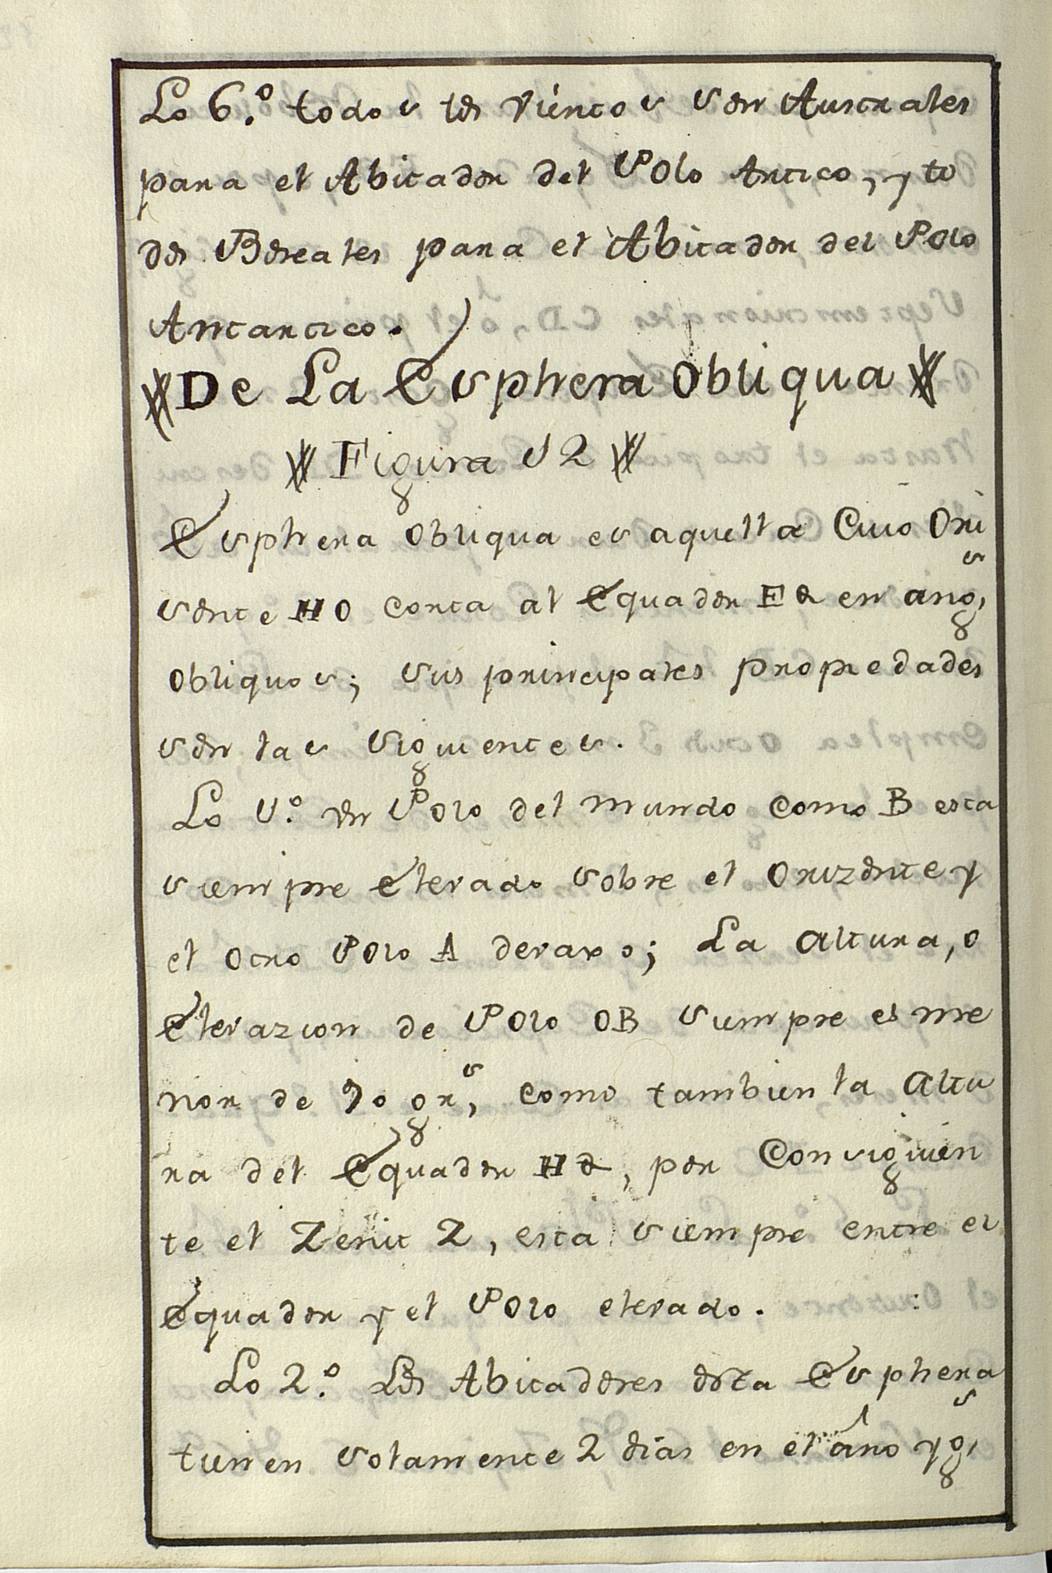 Lo 6.º todos los vientos son Australes
para el Abitador del Polo Artico, y to
dos Boreales para el Abitador del Polo
Antartico.
De La Esphera Obliqua
Figura 12
Esphera Obliqua es aquella Cuio Ori
sonte HO corta al Equador EQ en ang.s
obliquos; sus principales propiedades
son las siguientes.
Lo 1.º un Polo del mundo como B esta
siempre elevado sobre el Orizonte y
el otro Polo A devaxo; La altura, o
Elevazion de Polo OB siempre es me
nor de 90 gr.s, como tambien la Altu
ra del Equador HQ, por Consiguien
te el Zenit Z, esta siempre entre el
Equador y el Polo elevado.
Lo 2.º Los Abitadores desta Esphera
tienen solamente 2 dias en el año yg.s